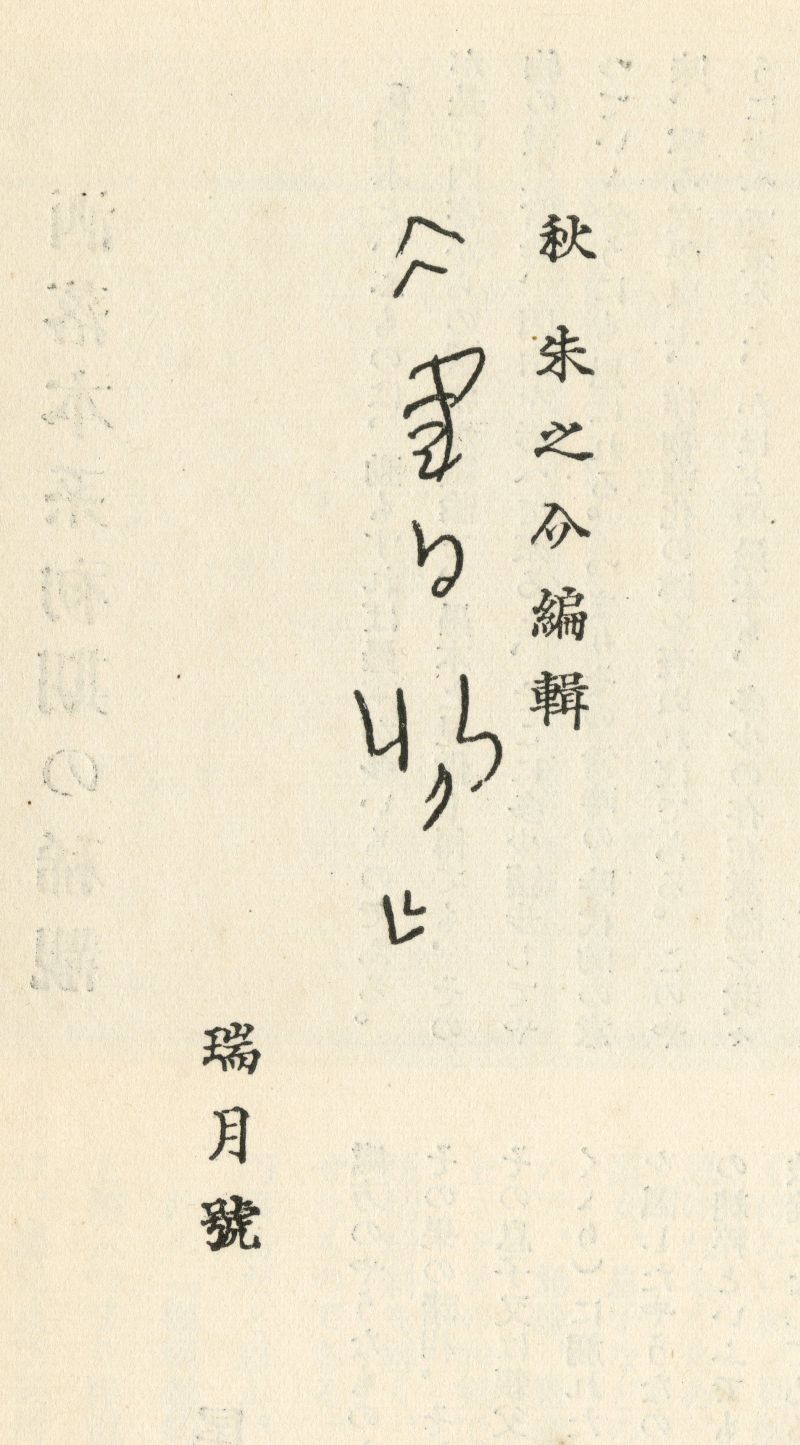 秋朱之介編輯
『書物』
瑞月號